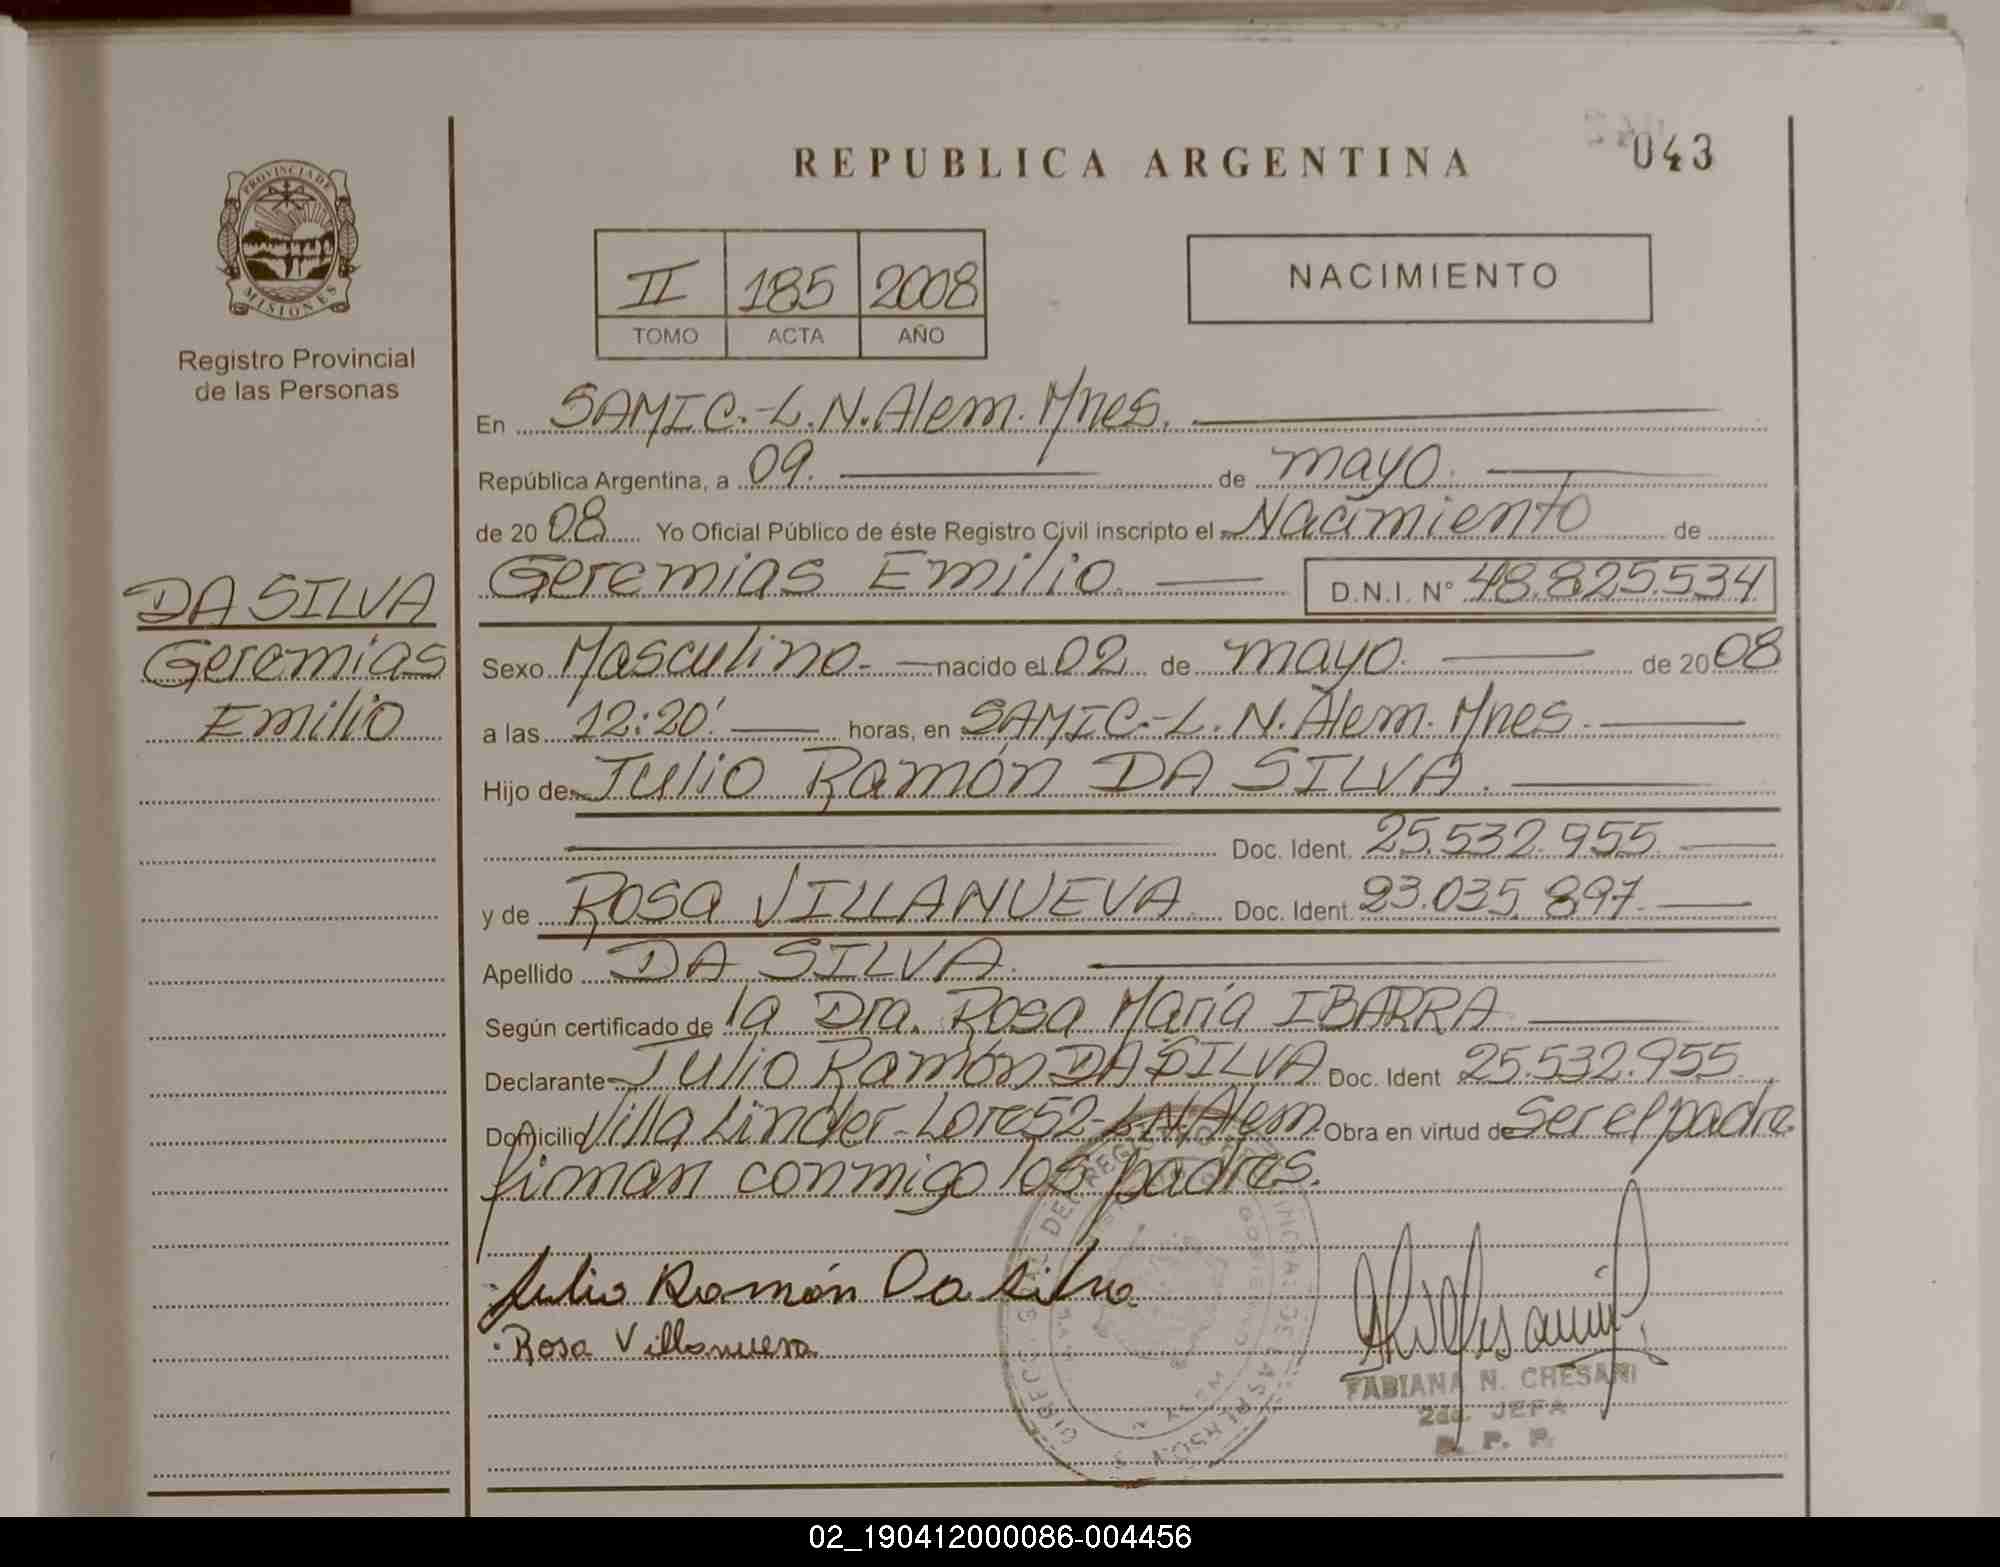 REPUBLICA ARGENTINA
043
PROVINCIA DE
MISIONES
Registro Provincial
de las Personas
II 185 2008
TOMO ACTA AÑO
NACIMIENTO
En SAMIC.-L.N.Alem.Mnes.
República Argentina, a 09. de mayo.
de 2008 Yo Oficial Público de éste Registro Civil inscripto el Nacimiento de
Geremias Emilio. D.N.I. N° 48.825.534
DA SILVA
Geremias
Emilio
Sexo Masculino. nacido el 02 de mayo. de 2008
a las 12:20' horas, en SAMIC.-L.N.Alem.Mnes.
Hijo de Julio Ramón DA SILVA.
Doc. Ident. 25.532.955
y de Rosa VILLANUEVA Doc. Ident. 23.035.897.
Apellido DA SILVA.
Según certificado de la Dra. Rosa María IBARRA
Declarante Julio Ramón DA SILVA Doc. Ident 25.532.955
Domicilio Villa Linder-Lote 52-L.N.Alem. Obra en virtud de Ser el padre.
firman conmigo los padres.
Julio Ramón Da Silva
Rosa Villanueva
FABIANA N. CHESANI
2da. JEFA
R. P. P.
02_190412000086-004456